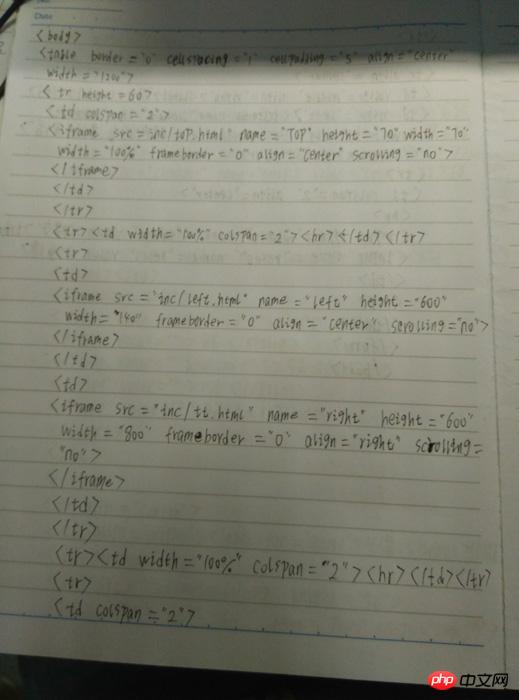 Date
<body>
<table border="0" cellspacing="1" cellpadding="5" align="center"
width="1200">
<tr height=60>
<td colspan="2">
<iframe src=inc/top.html" name="TOP" height="70" width="70"
width="100%" frameborder="0" align="center" scrolling="no">
</iframe>
</td>
</tr>
<tr><td width="100%" colspan="2"><hr></td></tr>
<tr>
<td>
<iframe src="inc/left.html" name="left" height="600"
width="140" frameborder="0" align="center" scrolling="no">
</iframe>
</td>
<td>
<iframe src="inc/tt.html" name="right" height="600"
width="800" frameborder="0" align="right" scrolling=
"no">
</iframe>
</td>
</tr>
<tr><td width="100%" colspan="2"><hr></td></tr>
<tr>
<td colspan="2">
php 中文网